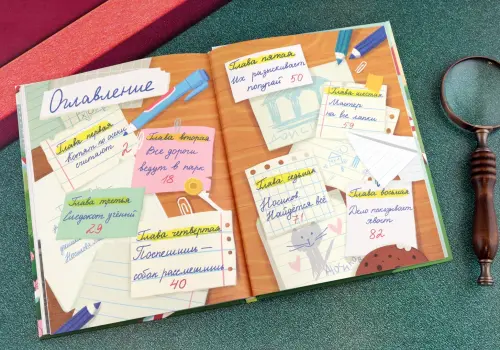 Оглавление
Глава первая
Котят по осени
считают 2
Глава вторая
Все дороги
ведут в парк
18
Глава третья
Следокот учёный
29
Глава четвертая
Поспешишь —
собак рассмешишь
40
Глава пятая
Их разыскивает
попугай 50
Глава шестая
Мастер
на все лапки
59
Глава седьмая
Носиков.
Найдётся всё
71
Глава восьмая
Дело показывает
хвост
82